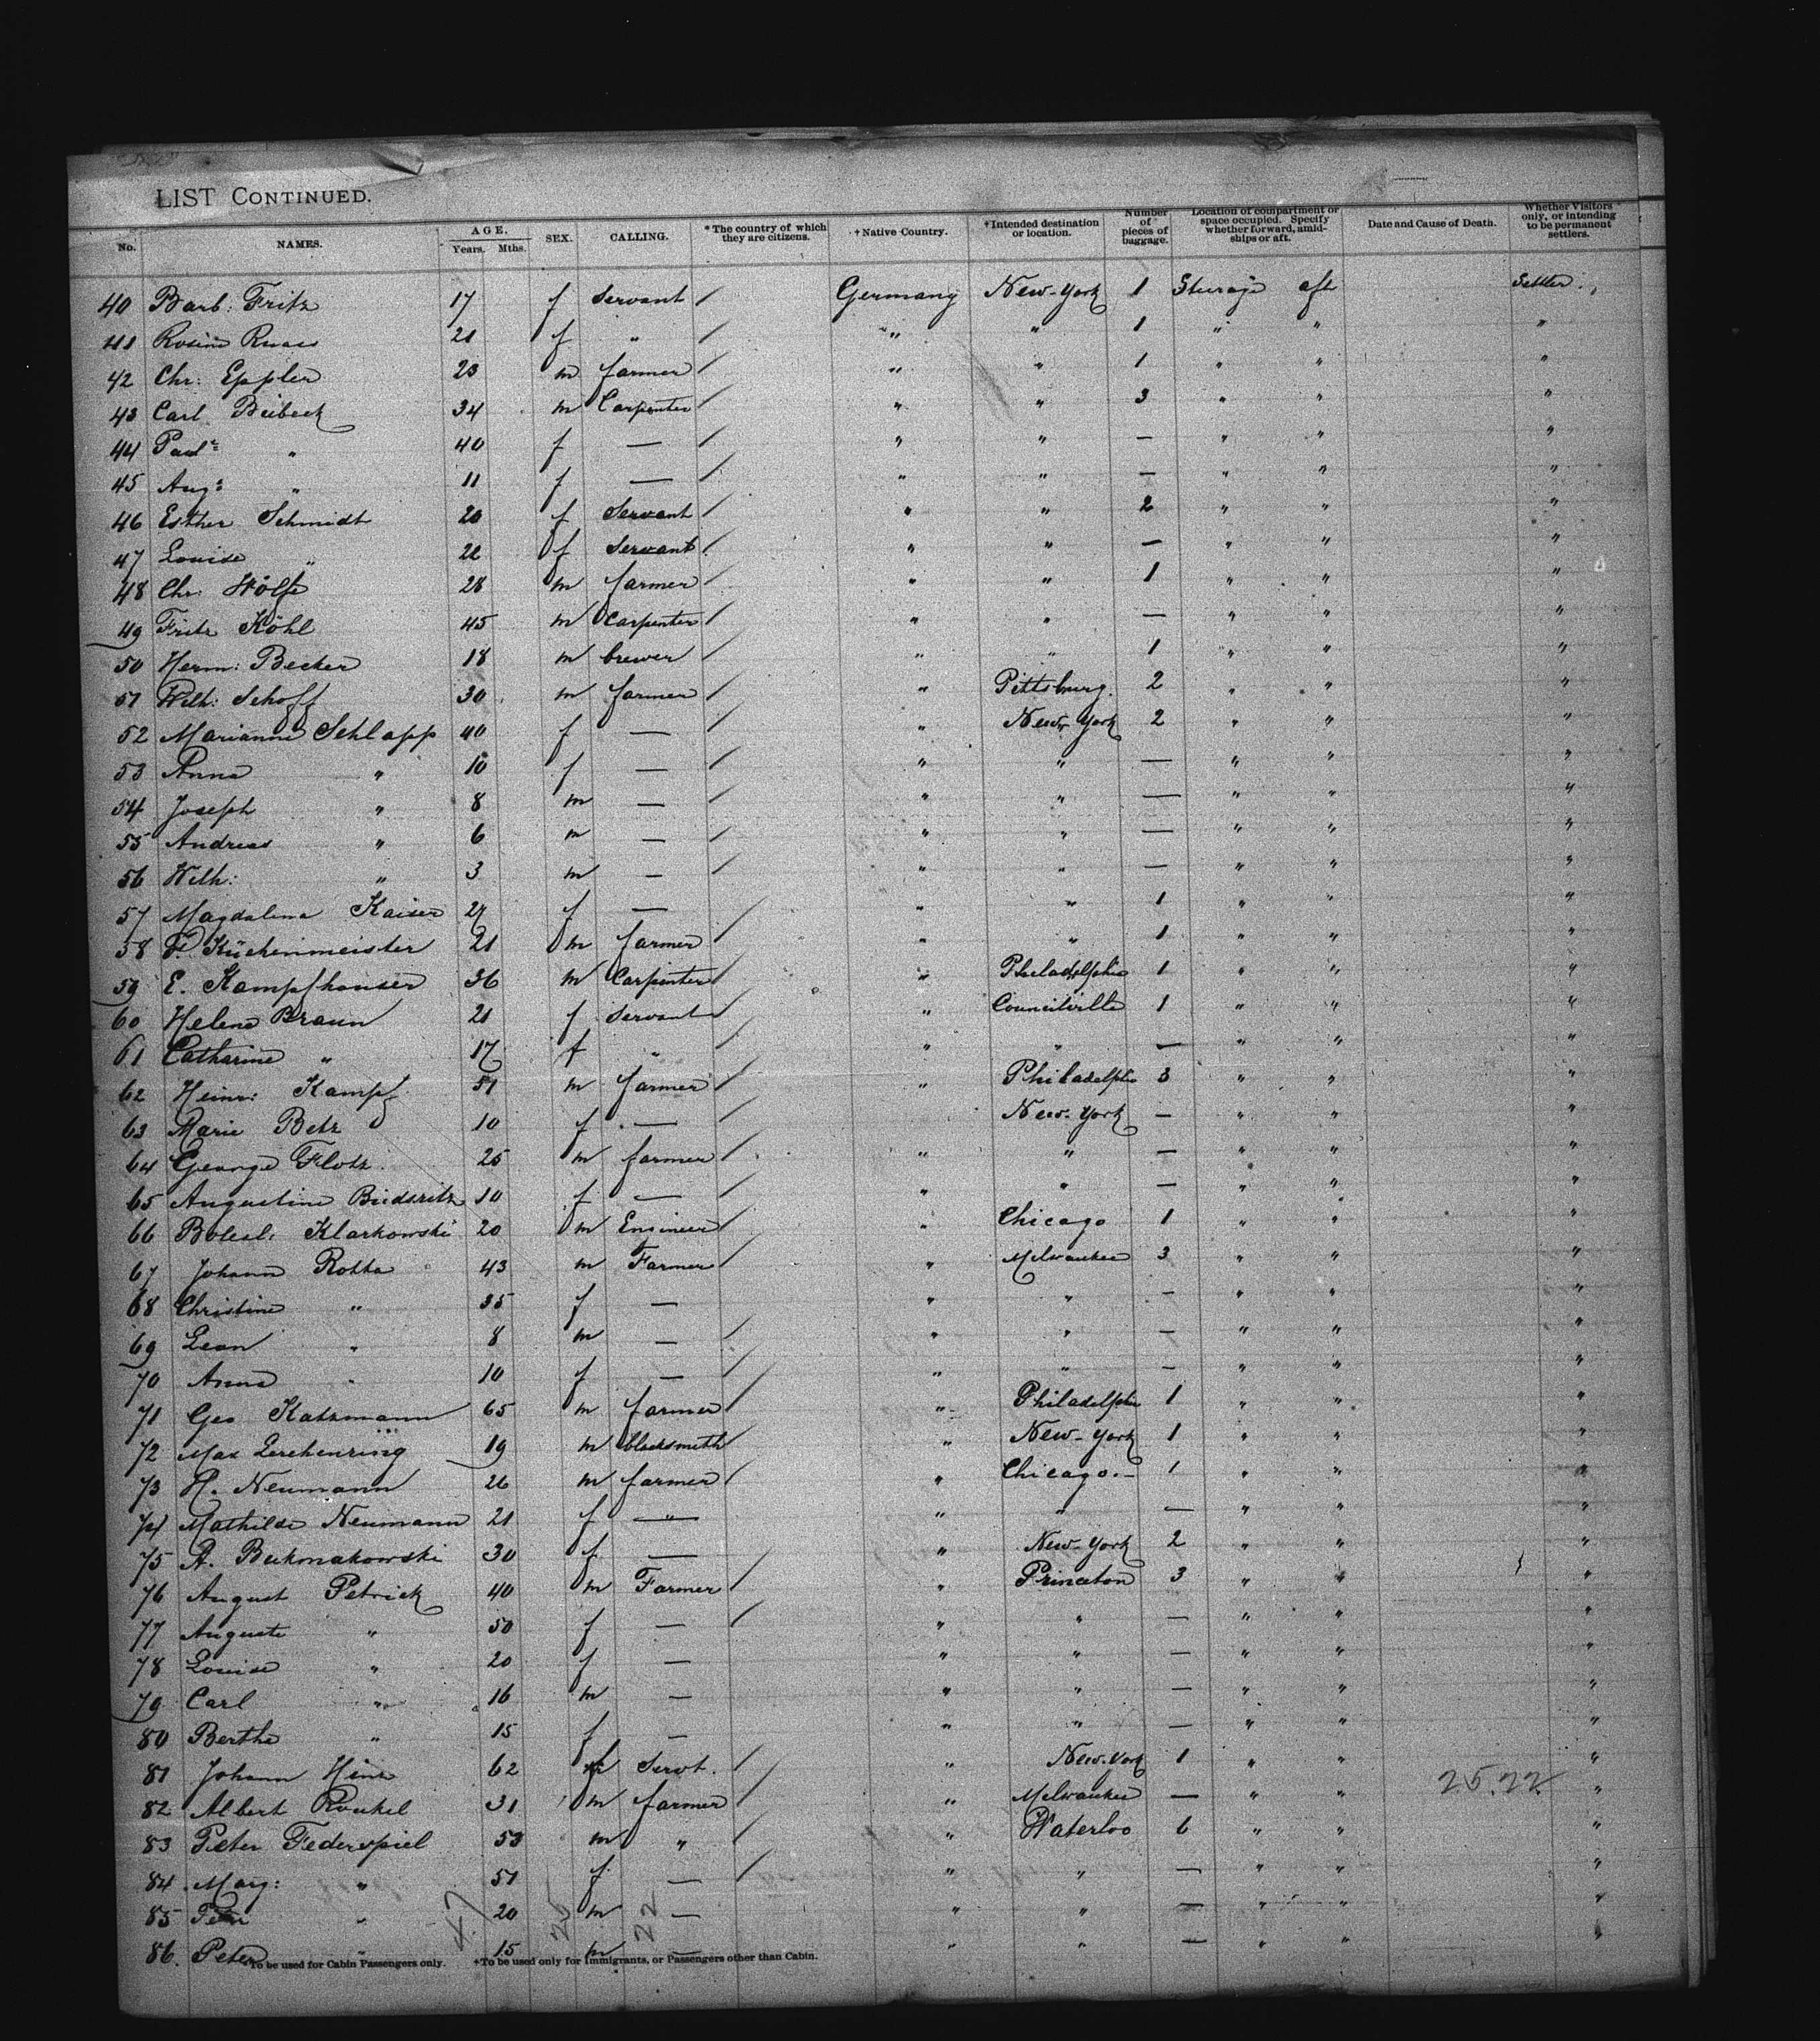 LIST CONTINUED.
No. NAMES. AGE. Years. Mths. SEX. CALLING. *The country of which they are citizens. +Native Country. +Intended destination or location. Number of pieces of baggage. Location of compartment or space occupied. Specify whether forward, amidships or aft. Date and Cause of Death. Whether Visitors only, or intending to be permanent settlers.
40 Barb: Fritz 17 f Servant / Germany New-York 1 Sturage aft Settler
41 Rosine 21 f " / " " 1 " " "
42 Chr: Eppler 23 m farmer / " " 1 " " "
43 Carl Beibeck 34 m Carpenter / " " 3 " " "
44 Paul " 40 f — / " " — " " "
45 Aug: " 11 f — / " " — " " "
46 Esther Schmidt 20 f Servant / " " 2 " " "
47 Louise " 22 f Servant / " " — " " "
48 Chr: Wölfe 28 m farmer / " " 1 " " "
49 Fritz Köhl 45 m Carpenter / " " — " " "
50 Herm: Becker 18 m brewer / " " 1 " " "
51 Wilh: Schoff 30 m farmer / " Pittsburg. 2 " " "
52 Marianne Schlapp 40 f — / " New-York 2 " " "
53 Anna " 10 f — / " " — " " "
54 Joseph " 8 m — / " " — " " "
55 Andreas " 6 m — / " " — " " "
56 Wilh: " 3 m — / " " — " " "
57 Magdalena Kaiser 27 f — / " " 1 " " "
58 F. Küchenmeister 21 m farmer / " " 1 " " "
59 E. Kampfhauser 36 m Carpenter / " Philadelphia 1 " " "
60 Helene Braun 21 f Servant / " Councilville 1 " " "
61 Catharine " 17 f " / " " — " " "
62 Heinr: Kampf 51 m farmer / " Philadelphia 3 " " "
63 Marie Betz 10 f — / New-York — " " "
64 George Flotz 25 m farmer / " " — " " "
65 Augustine 10 f — / " " — " " "
66 Bolesl: Klarkowski 20 m Engineer / " Chicago 1 " " "
67 Johann Rotta 43 m Farmer / " Milwaukee 3 " " "
68 Christine " 35 f — " " — " " "
69 Leon " 8 m — / " " — " " "
70 Anna " 10 f — / " " — " " "
71 Geo Katzmann 65 m farmer / " Philadelphia 1 " " "
72 Max Lerchenring 19 m blacksmith " New-York 1 " " "
73 H. Neumann 26 m farmer / " Chicago. 1 " " "
74 Mathilde Neumann 21 f — " " — " " "
75 A. Bukmakowski 30 f — " New-York 2 " " "
76 August Petrick 40 m Farmer / " Princeton 3 " " "
77 Auguste " 50 f — / " " — " " "
78 Louise " 20 f — " " — " " "
79 Carl " 16 m — " " — " " "
80 Berthe " 15 f — " " — " " "
81 Johann Hinz 62 Servt. / " New-York 1 " " "
82 Albert Runkel 31 m farmer / " Milwaukee — " " 25.22 "
83 Peter Federspiel 53 m " / " Waterloo 6 " " "
84 Marg: " 51 f — / " " — " " "
85 " 20 m — " " — " " "
86. Peter " 15 m — " " — " " "
47 25 22
*To be used for Cabin Passengers only. +To be used only for Immigrants, or Passengers other than Cabin.